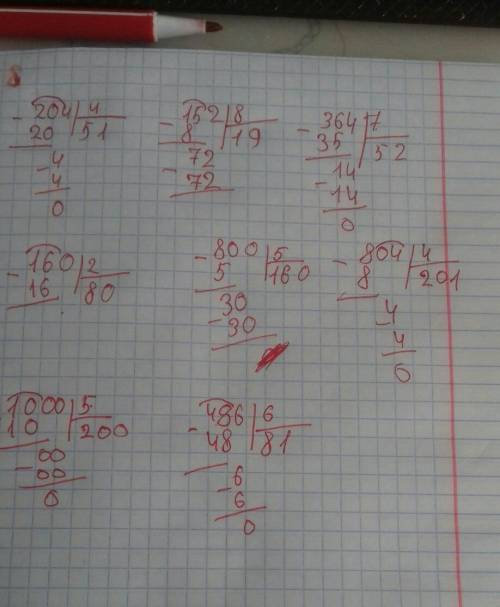 - 204 | 4
20 | 51
- 4
4
0
- 152 | 8
8 | 19
- 72
72
- 364 | 7
35 | 52
- 14
14
0
- 160 | 2
16 | 80
- 800 | 5
5 | 160
- 30
30
- 804 | 4
8 | 201
- 4
4
0
1000 | 5
10 | 200
- 00
00
0
- 486 | 6
48 | 81
- 6
6
0